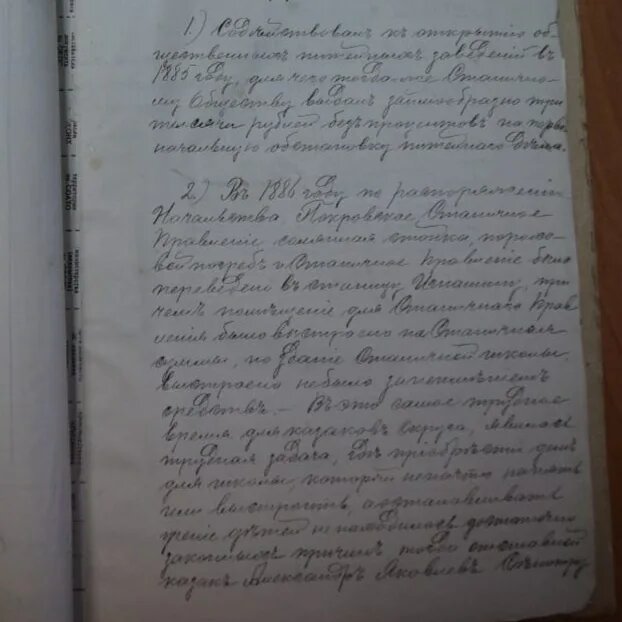 1.) Содѣйствовалъ къ открытію об-
щественныхъ питейныхъ заведеній въ
1885 году, для чего тогда-же Станично-
му Обществу выдалъ займообразно три
тысячи рублей безъ процентовъ на перво
начальную обстановку питейнаго
2.) Въ 1886 году, по распоряженію
Начальства Покровское Станичное
Правленіе, соляная стойка, порохо-
вой погребъ и Станичное Правленіе было
переведено въ станицу Игнашину, при
чемъ помѣщеніе для Станичнаго Прав
ленія было выстроено на Станичныя
суммы, но зданіе Станичной школы
выстроено небыло за неимѣніемъ
средствъ. — Въ это самое трудное
время для казаковъ округа, явилась
трудная задача, гдѣ пріобрѣсти домъ
для школы, который не на что нанять
или выстроить, а останавливать
ученіе дѣтей не находилось достаточно
законныхъ причинъ, тогда отставной
казакъ Александръ Яковлевъ